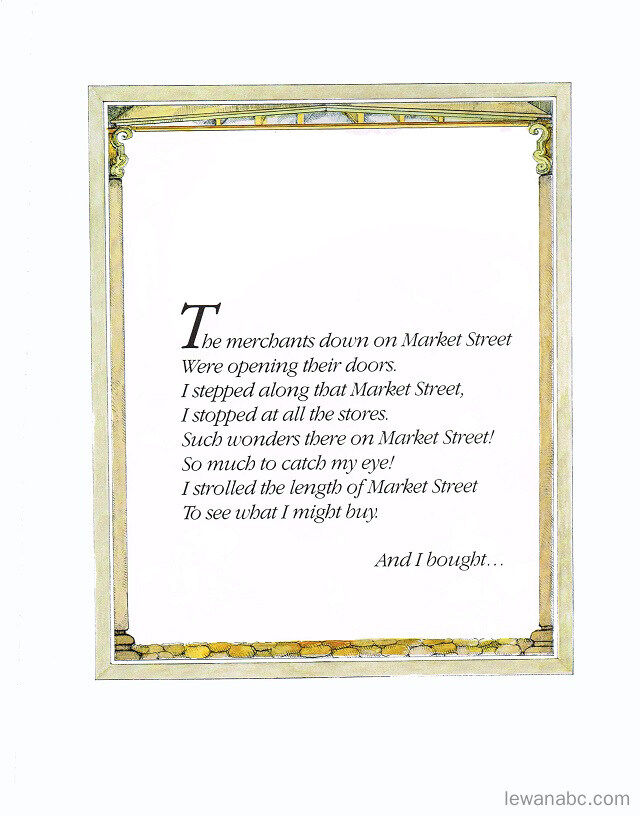 The merchants down on Market Street
Were opening their doors.
I stepped along that Market Street,
I stopped at all the stores.
Such wonders there on Market Street!
So much to catch my eye!
I strolled the length of Market Street
To see what I might buy.
And I bought...
lewanabc.com